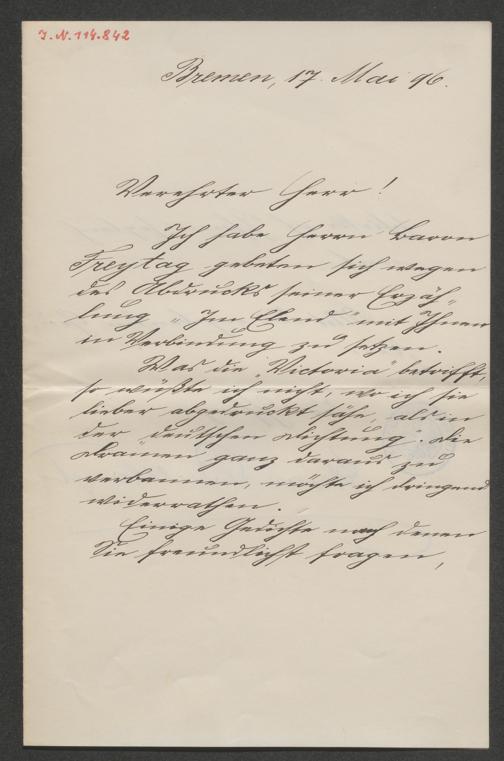 I.N. 114.842
Bremen, 17. Mai 96.
Verehrter Herr!
Ich habe Herrn Baron
Freytag gebeten sich wegen
des Abdrucks seiner Erzäh-
lung „Im Elend“ mit Ihnen
in Verbindung zu setzen.
Was die „Victoria“ betrifft,
so wüßte ich nicht, wo ich sie
lieber abgedruckt sähe, als in
der „Deutschen Dichtung“. Die
Dramen ganz daraus zu
verbannen, möchte ich dringend
widerrathen.
Einige Gedichte nach denen
Sie freundlichst fragen,